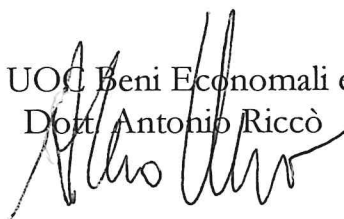 UOC Beni Economali e
Dott. Antonio Riccò